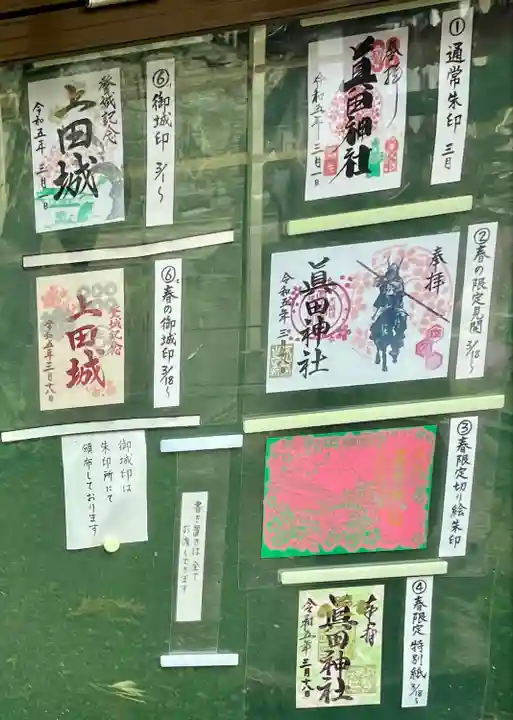 ①通常朱印 三月
奉拝
眞田神社
令和五年 三月一日
②春の限定見開 3/18〜
奉拝
眞田神社
令和五年三月
③春限定切り絵朱印
④春限定 特別紙 3/18〜
奉拝
眞田神社
令和五年三月十八日
⑥御城印 3/1〜
登城記念
上田城
令和五年 三月一日
⑥春の御城印 3/18〜
登城記念
上田城
令和五年三月十八日
御城印は
朱印所にて
頒布しております
書き置きは全て
お渡しできます